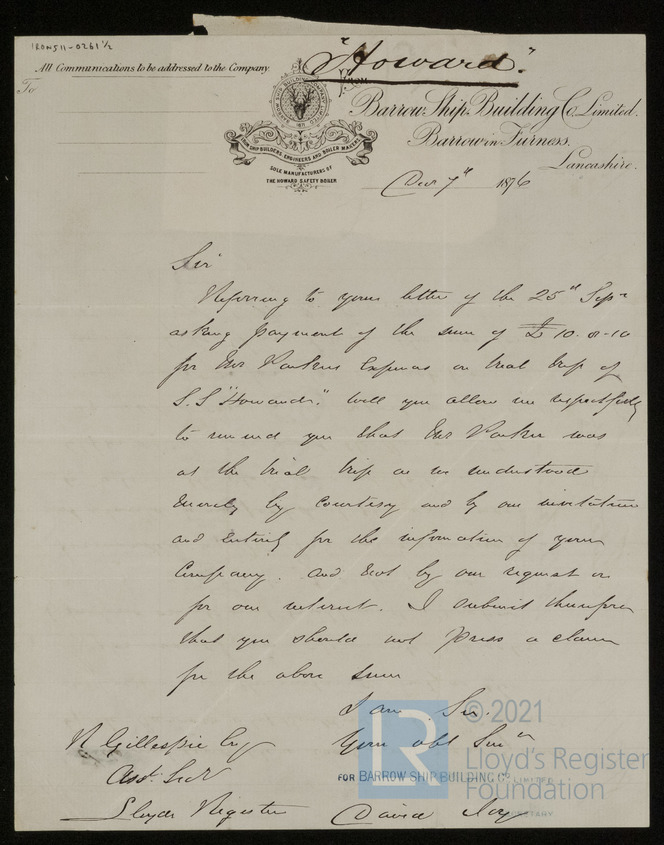 IRON511-0261 1/2
"Howard".
All Communications to be addressed to the Company.
To
From
Barrow Ship Building Co. Limited.
Barrow in Furness.
Lancashire.
IRON SHIP BUILDERS, ENGINEERS AND BOILER MAKERS
SOLE MANUFACTURERS OF
THE HOWARD SAFETY BOILER
7th 1876
Sir
Referring to your letter of the 25th Sepr
asking payment of the sum of £10.8-10
for Mr Parkers Expenses on trial trip of
S.S "Howard". Will you allow me respectfully
to remind you that Mr Parker was
at the trial trip as we understood
merely by courtesy and by our invitation
and entirely for the information of your
Company. and not by our request or
for our interest. I submit therefore
that you should not press a claim
for the above sum
I am Sir.
Your obt Servt
R Gillespie Esq
Asst. Secr
Lloyds Register
FOR BARROW SHIP BUILDING CO LIMITED
David Joy
SECRETARY
LR
© 2021
Lloyd's Register
Foundation